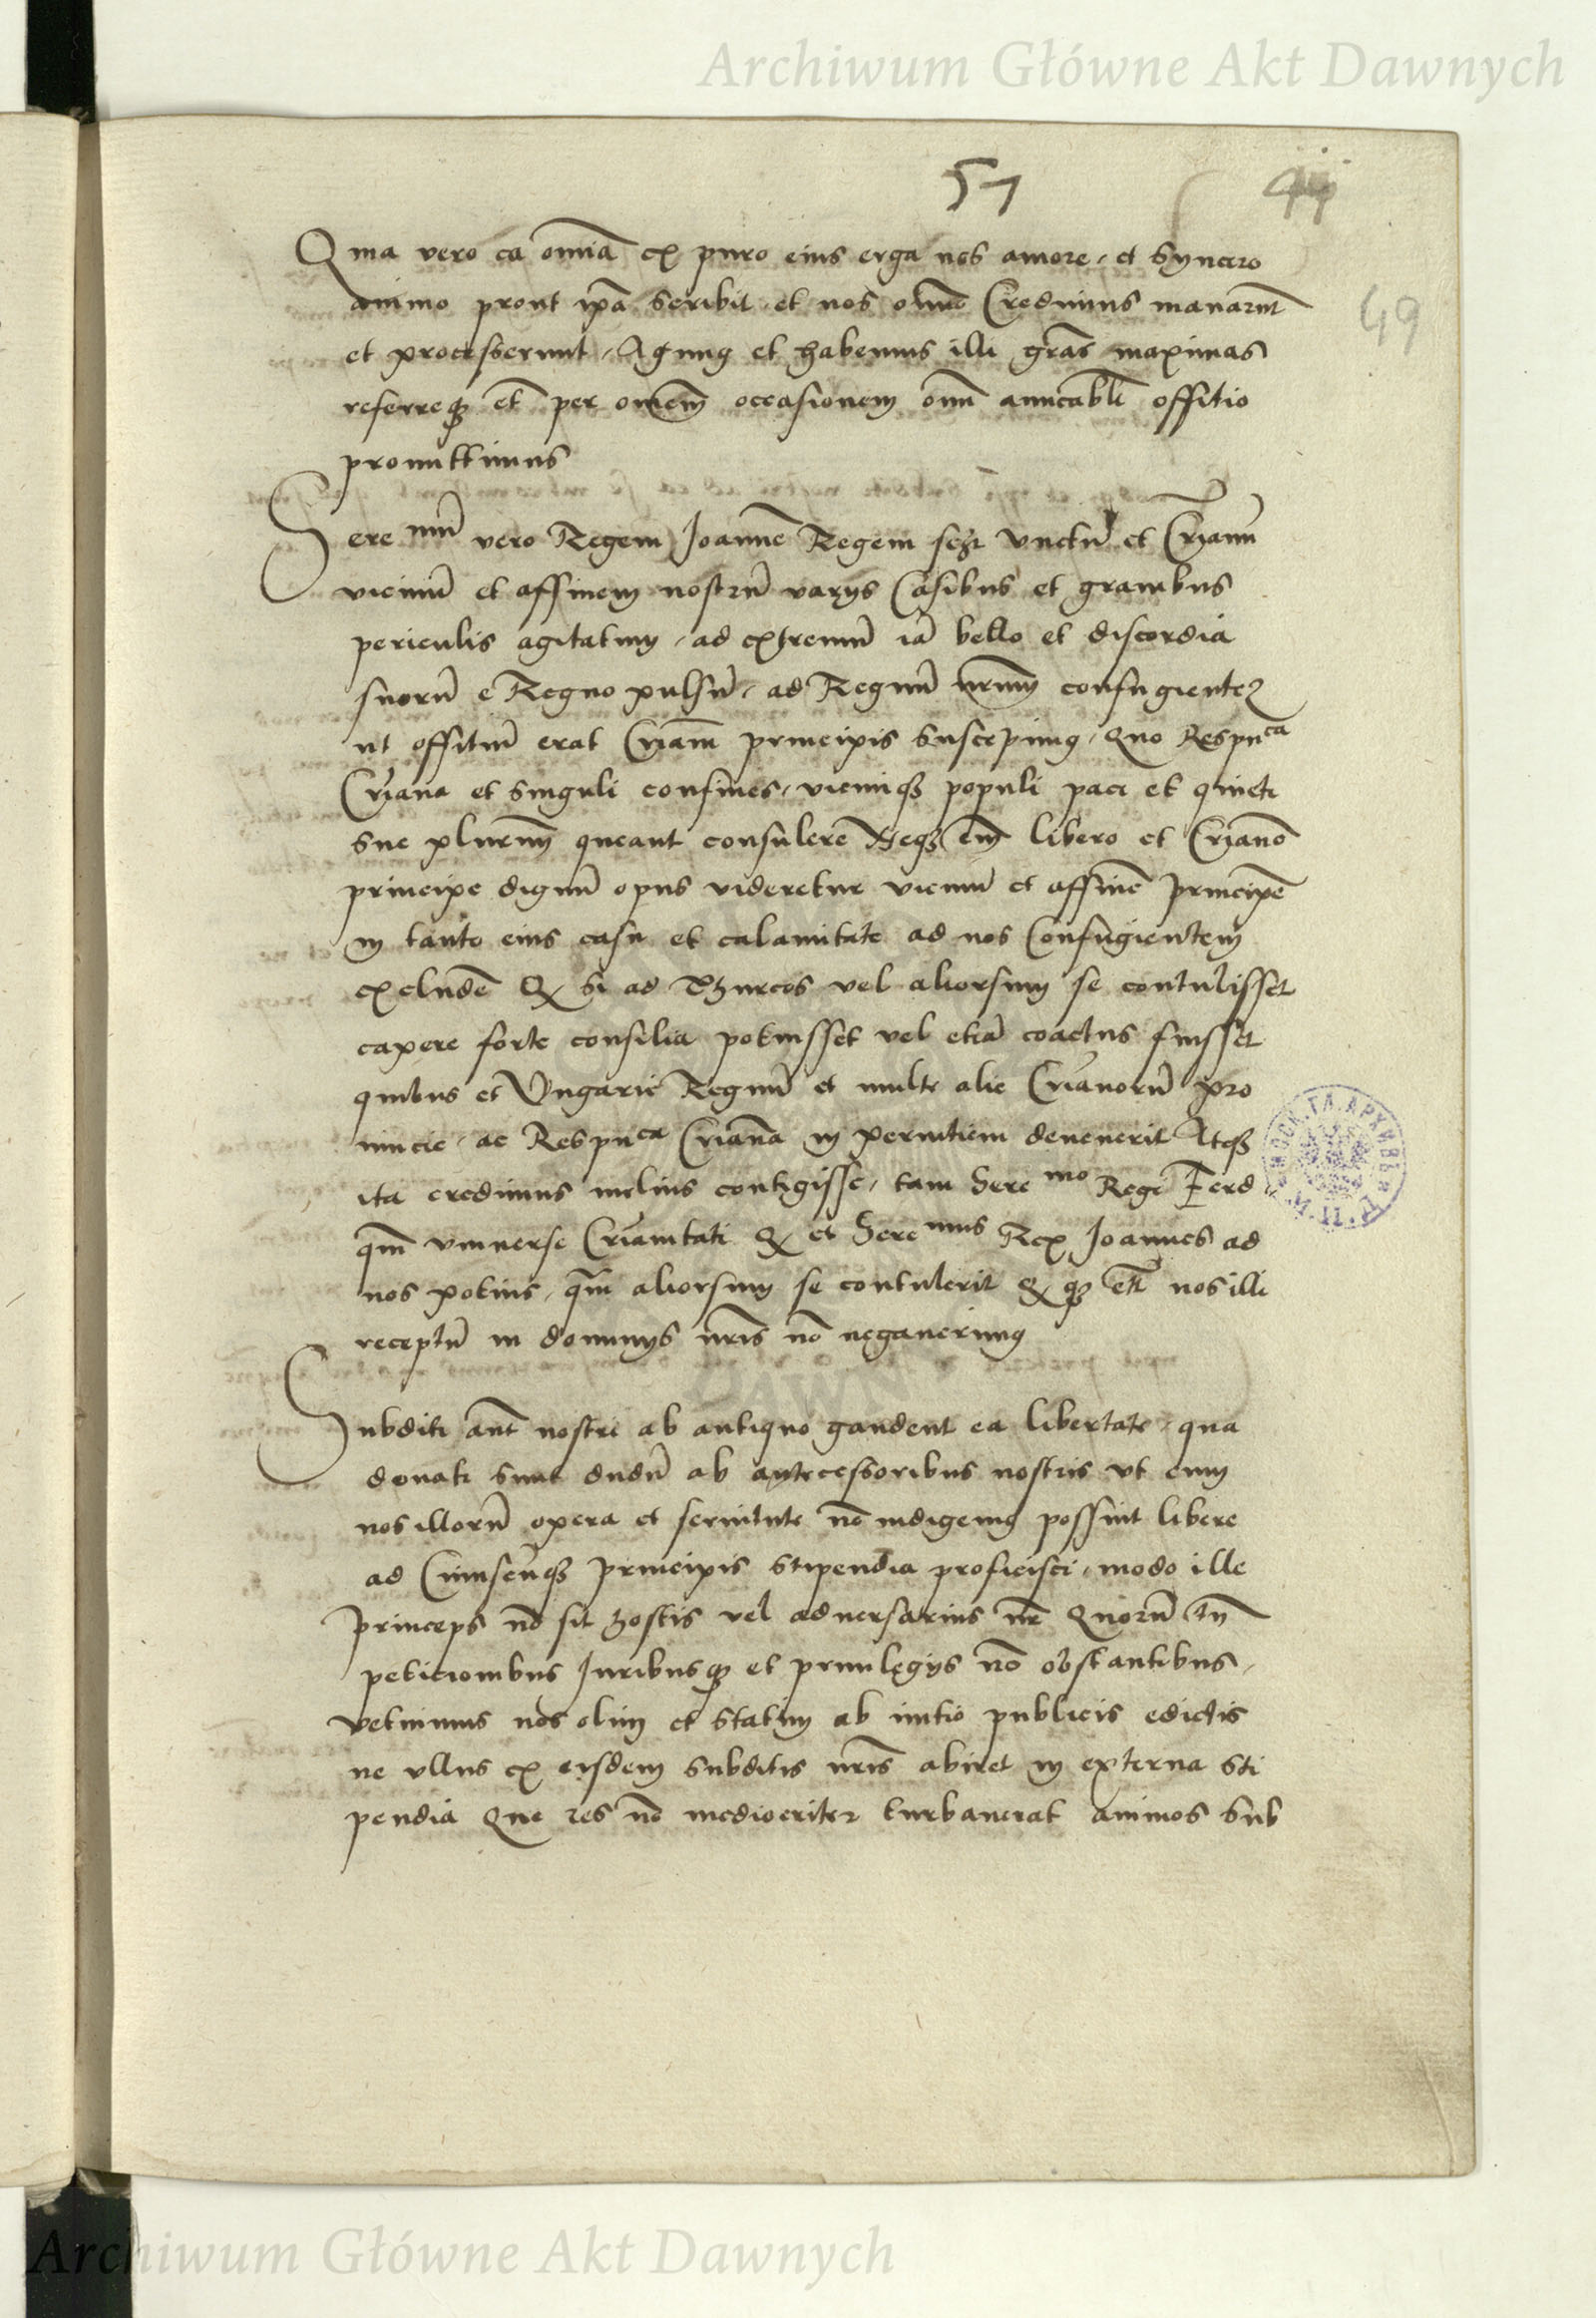 Archiwum Główne Akt Dawnych
57
49
Quia vero ea omīa ex puro eius erga nos amore, et syncero
animo prout ip̄a scribit, et nos omnīo Credimus manarūt
et processerunt, Agimus et habemus illi grās maximas
referreq; et̄ per omēm occasionem omī amicabli offitio
promittimus
Sere mū vero Regem Joannē Regem scz vnctū et Cr̄ianū
vicinū et affinem nostrū varijs Casibus et grauibus
periculis agitatum, ad extremū iā bello et discordia
suorū e Regno pulsū, ad Regnū nr̄um confugientē
ut offitiū erat Cr̄iani principis suscepimus, Quo Respuca
Cr̄iana et singuli confines, vicinīq; populi paci et quieti
sue plurimū queant consulere Neq; em̄ libero et Cr̄iano
principe dignū opus videretur vicinū et affinē principē
in tanto eius casu et calamitate ad nos Confugientem
excludē Q si ad Thurcos vel aliorsum se contulisset
capere forte consilia potuisset vel etiā coactus fuisset
quibus et Vngarie Regnū et multe alie Cr̄ianorū pro
uincie, ac Respuca Cr̄iana in pernitiem deuenerit Atq;
ita credimus melius contigisse, tam Sere mo Regi Ferd
qm̄ vniuerse Cr̄ianitati Q et Sere mus Rex Joannes ad
nos potius, qm̄ aliorsum se contulerit Q q; et̄ nos illi
receptū in dominijs nr̄is nō negauerimus
Subditi aūt nostri ab antiquo gaudent ea libertate, qua
donati sunt dudū ab antecessoribus nostris vt cum
nos illorū opera et seruitute nō indigemus possint libere
ad Cuiuscūq; principis stipendia proficisci, modo ille
princeps nō sit hostis vel aduersarius nr̄ Quorū tn̄
peticionibus Juribusq; et priuilegijs nō obstantibus,
vetuimus nos olim et statim ab initio publicis edictis
ne vllus ex eisdem subditis nr̄is abiret in externa sti
pendia Que res nō mediocriter turbauerat animos sub
Archiwum Główne Akt Dawnych